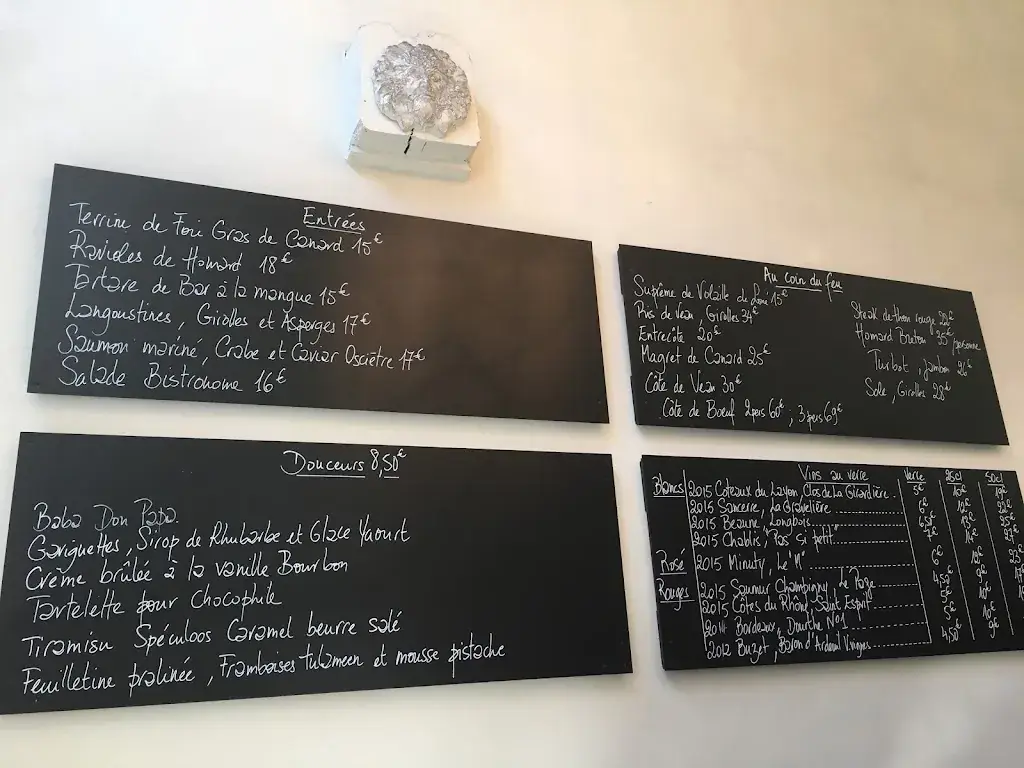 Entrées
Terrine de Foie Gras de Canard 15€
Ravioles de Homard 18€
Tartare de Bar à la mangue 15€
Langoustines, Girolles et Asperges 17€
Saumon mariné, Crabe et Caviar Osciètre 17€
Salade Bistronome 16€
Au coin du feu
Suprême de Volaille de Loué 15€
Ris de veau, Girolles 34€
Entrecôte 20€
Magret de Canard 25€
Côte de Veau 30€
Côte de Boeuf 2pers 60€, 3pers 69€
Steak de thon rouge 22€
Homard Breton 35€/personne
Turbot, Jambon 26€
Sole, Girolles 28€
Douceurs 8,50€
Baba Don Papa
Gariguettes, Sirop de Rhubarbe et Glace Yaourt
Crème brûlée à la vanille Bourbon
Tartelette pour Chocophile
Tiramisu Spéculoos Caramel beurre salé
Feuilletine pralinée, Framboises tulameen et mousse pistache
Vins au verre Verre 25cl 50cl
Blancs 2015 Coteaux du Layon, Clos de La Girardière. 5€ 10€ 19€
2015 Sancerre, La Gravelière 6€ 12€
2015 Beaune, Lonabois
2015 Chablis, "Pas si petit"
Rosé 2015 Minuty, Le "M" 6€ 12€
Rouges 2015 Saumur Champigny 4,50€ 9€
2015 Côtes du Rhône, Saint Esprit 5€ 10€
2011 Bordeaux, Dourthe No1 5€ 10€
2012 Buzet, Baron d'Ardeuil Vignes 4,50€ 9€